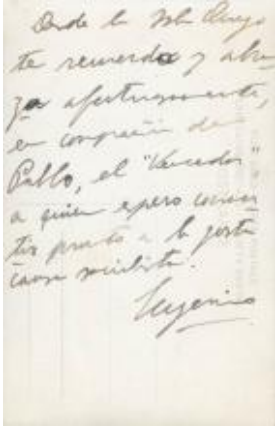 Desde la Isla Chuyo
te recuerda y abra
za afectuosamente,
en compañía de
Pablo, el "Vencedor"
a quien espero conver
tir pronto a la justa
causa socialista.
Eugenio